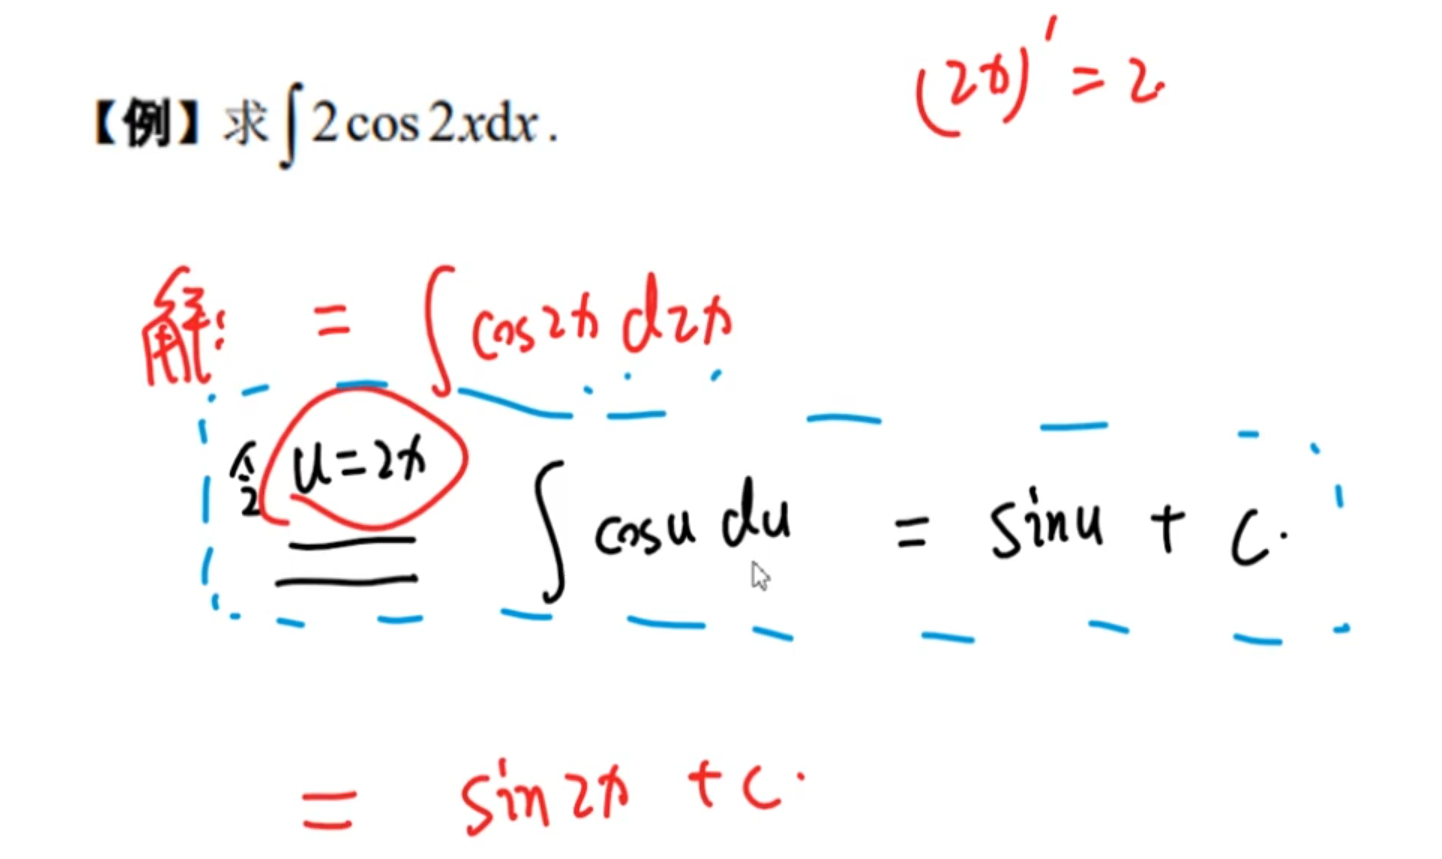 【例】求∫2cos2xdx.
(2x)′=2.
解: =∫cos2x d2x
令 u=2x
∫cosu du = sinu + C.
= sin2x + C.